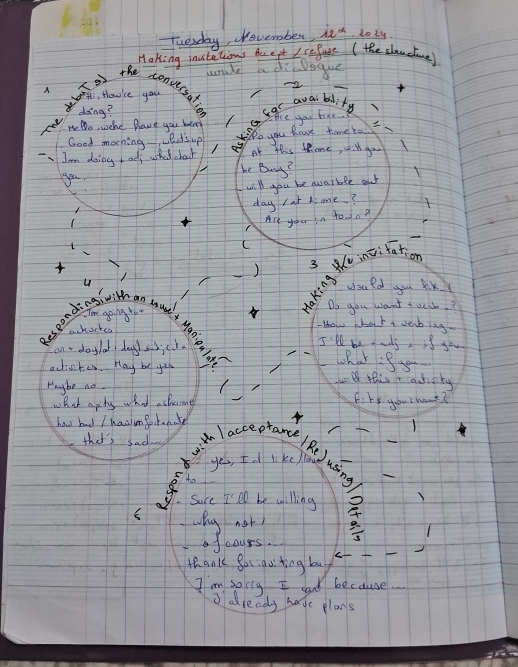 Tuesday, November, 12th. 2024
Making invitations Accept / refuse ( the structure).
write a dialogue
1
The debut of the conversation
Hi, How're you
doing?
Hello, where have you been
Good morning , what's up
I'm doing + adj what about
you.
2
Asking for avaibility
Are you free...
Do you have time to
At this time, will you
be Busy?
will you be avaible out
day / at time ?
Are you in town?
3
Making the invitation
would you like
Do you want + verb ?
How about + verb ing
I'll be + adj , if you
what if you
will this + activity
fits you have?
4
Responding with an + Manipulate
I'm going to +
activities
on + day
activities. May be yes
Maybe no
what a pity what a shame
how bad / how unfortunate
that's sad
5
Respond with / acceptance / (Re)using / Details
yes, I'd like / love
to
Sure I'll be willing
why not,
of cours...
thank for inviting bu
I'm sorry I can't because...
I already have plans